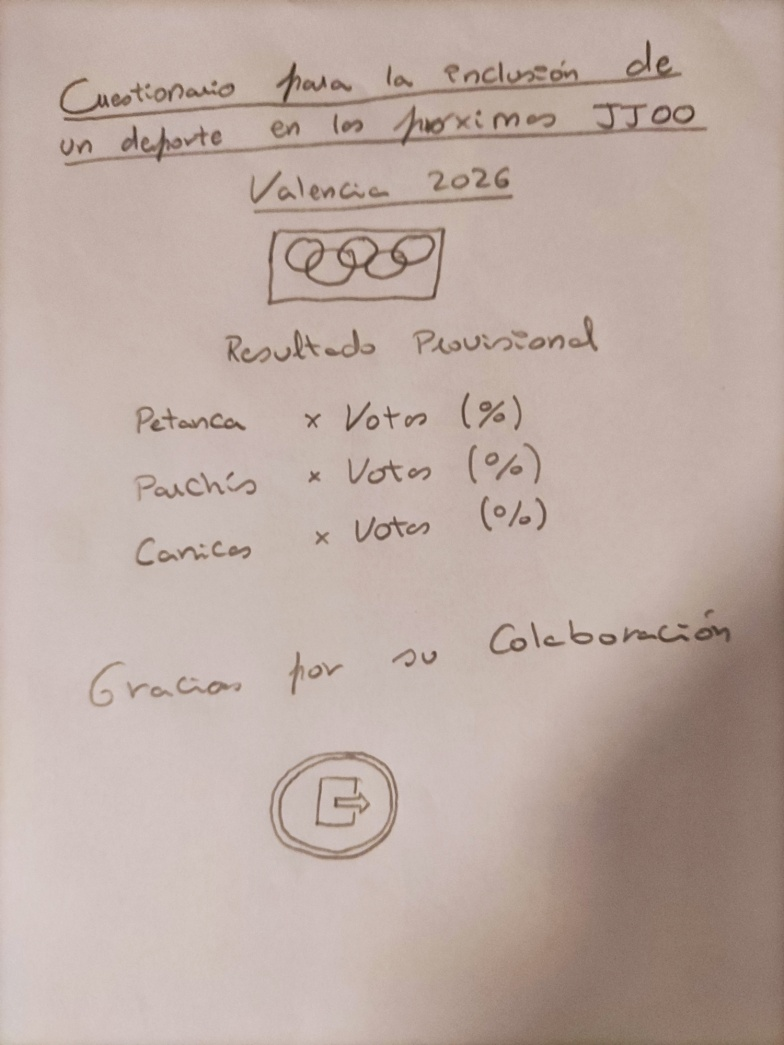 Cuestionario para la inclusión de
un deporte en los próximos JJOO
Valencia 2026
Resultado Provisional
Petanca x Votos (%)
Parchís x Votos (%)
Canicas x Votos (%)
Gracias por su Colaboración